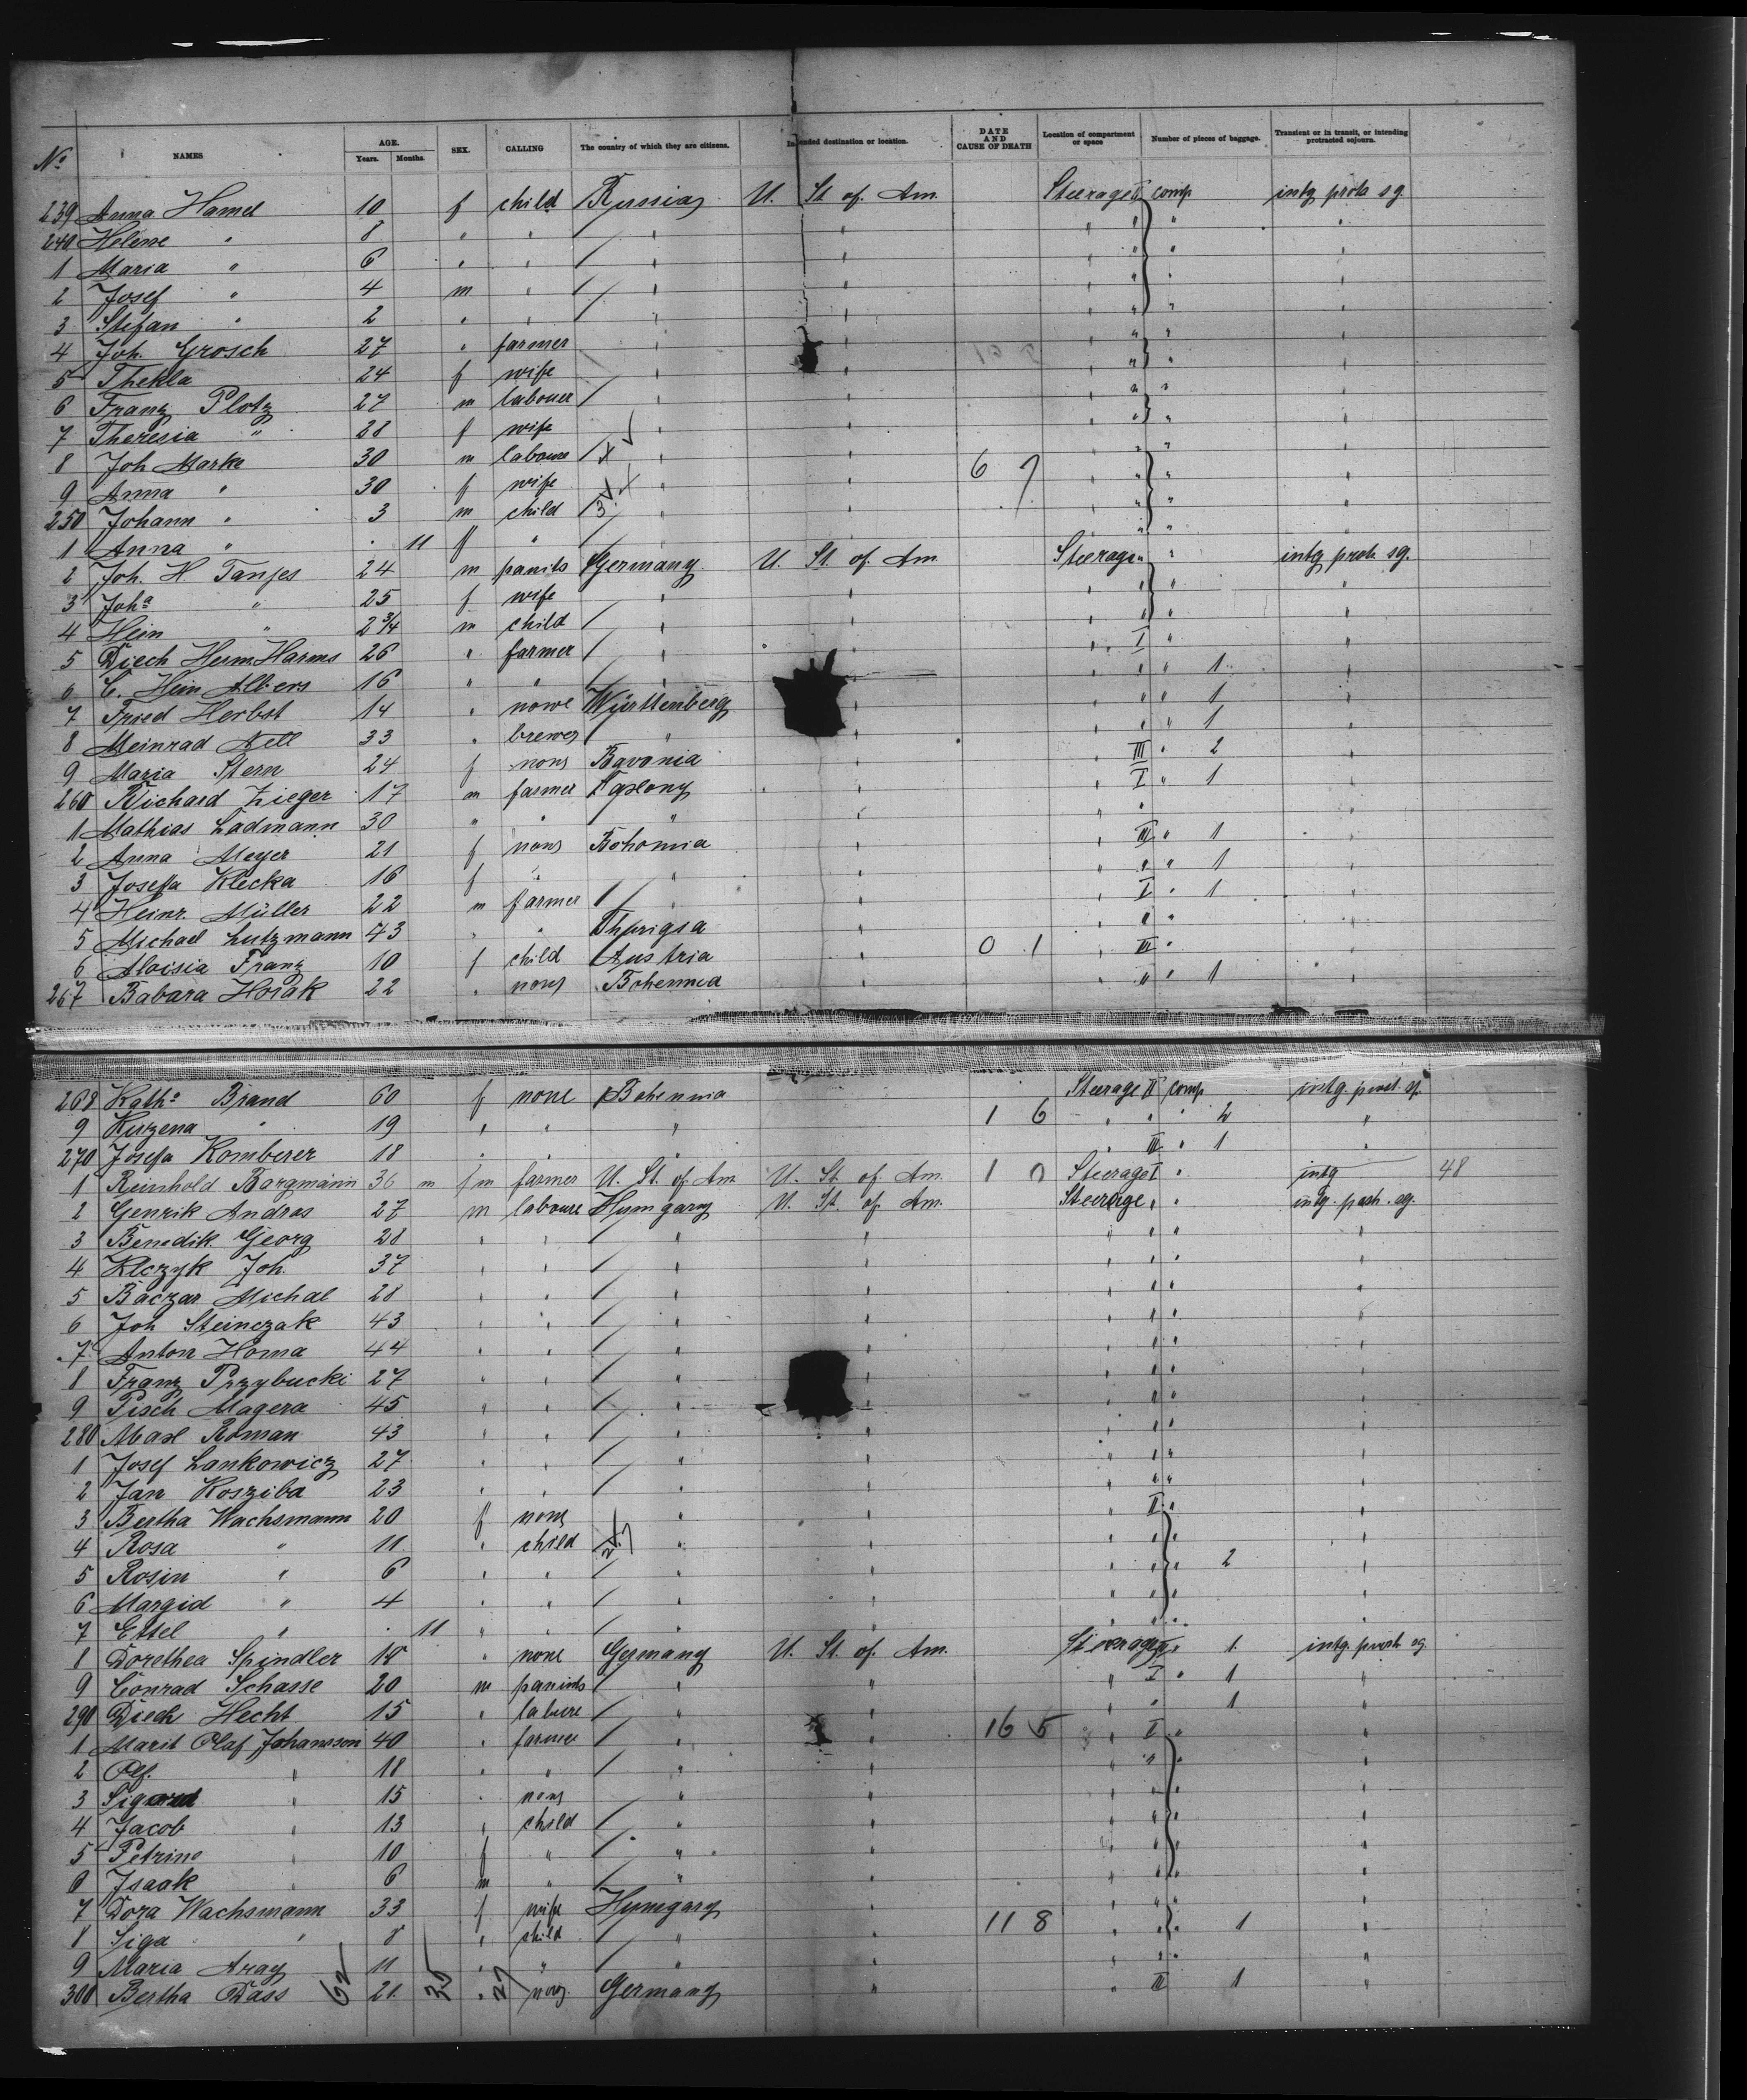 No. NAMES AGE. Years. Months. SEX. CALLING The country of which they are citizens. Intended destination or location. DATE AND CAUSE OF DEATH Location of compartment or space Number of pieces of baggage. Transient or in transit, or intending protracted sojourn.
239 Anna Hamel 10 f child Russia U. St. of. Am. Steerage II comp intg protr sg.
240 Helene " 8 " " " " " " " "
1 Maria " 6 " " " " " " " "
2 Josef " 4 m " " " " " " "
3 Stefan " 2 " " " " " " " "
4 Joh. Grosch 27 " farmer " " " " " "
5 Thekla 24 f wife " " " " " "
6 Franz Plotz 27 m labouer " " " " " "
7 Theresia " 28 f wife " " " " " "
8 Joh Marke 30 m laboure " " " " " "
9 Anna " 30 f wife " " 6 7 " " " "
250 Johann " 3 m child " " " " " "
1 Anna " 11 f " " " " " " "
2 Joh. H. Tanjes 24 m Germany U. St. of. Am Steerage " " intg protr sg.
3 Joha " 25 f wife " " " " " "
4 Hein " 2 3/4 m child " " " " " "
5 Diech Herm. Harms 26 " farmer " " " I " "
6 C. Hein Albers 16 " " " " " " " 1 "
7 Fried Herbst 14 " none Württemberg " " " " 1 "
8 Meinrad Nell 33 " brewer " " " " " 1 "
9 Maria Stern 24 f none Bavaria " " III " 2 "
260 Richard Zieger 17 m farmer " " I " 1 "
1 Mathias Ladmann 30 " " " " " " "
2 Anna Meyer 21 f none Bohomia " " III " 1 "
3 Josefa Klecka 16 f " " " " " " 1 "
4 Heinr. Müller 22 m farmer " " " I " 1 "
5 Michael Lutzmann 43 " " " " " " "
6 Aloisia Franz 10 f child Austria " 0 1 " III " "
267 Babara Horak 22 " none Bohemia " " " " 1 "
268 Katha Brand 60 f none Bohemia Steerage II comp intg. protr. sj.
9 " 19 " " " 1 6 " " " 2 "
270 Josefa Komberer 18 " " " III " 1 "
1 Reinhold Bargmann 36 m f m farmer U. St. of. Am. U. St. of. Am. 1 0 Steerage I " intg 48
2 Genrik Andras 27 m laboure Hyngary U. St. of. Am. Steerage " " intg. protr. sg.
3 Benedik. Georg 28 " " " " " " " "
4 Klczyk Joh. 37 " " " " " " " "
5 Baczar Michal 28 " " " " " " " "
6 Joh Steinczak 43 " " " " " " " "
7 Anton Homa 44 " " " " " " " "
8 Franz Przybucki 27 " " " " " " " "
9 Pisch Magera 45 " " " " " " " "
280 Maxl Roman 43 " " " " " " " "
1 Josef Lankowicz 27 " " " " " " " "
2 Jan Kosziba 23 " " " " " " " "
3 Bertha Wachsmann 20 f none " " " II " "
4 Rosa " 11 " child " " " " " "
5 Rosin " 6 " " " " " " " 2 "
6 Margid " 4 " " " " " " " "
7 Ettel " 11 " " " " " " " "
8 Dorethea Spindler 18 " none Germany U. St. of. Am. Steerage " " 1 intg. protr sg.
9 Conrad Schasse 20 m " " " I " 1 "
290 Diech Hecht 15 " labure " " " " 1 "
1 Marit Olaf Johansson 40 " farmer " " 16 5 " I " "
2 Olf. " 18 " " " " " " " "
3 " 15 " none " " " " " "
4 Jacob " 13 " child " " " " " "
5 Petrine " 10 f " " " " " " "
6 Isaak " 6 m " " " " " " "
7 Dora Wachsmann 33 f wife Hyngary " " " " "
8 Siga " 8 " child " " 11 8 " " " 1 "
9 Maria Aray 11 " " " " " " " "
300 Bertha Dass 21 " none Germany " " II 1 "
62 35 27